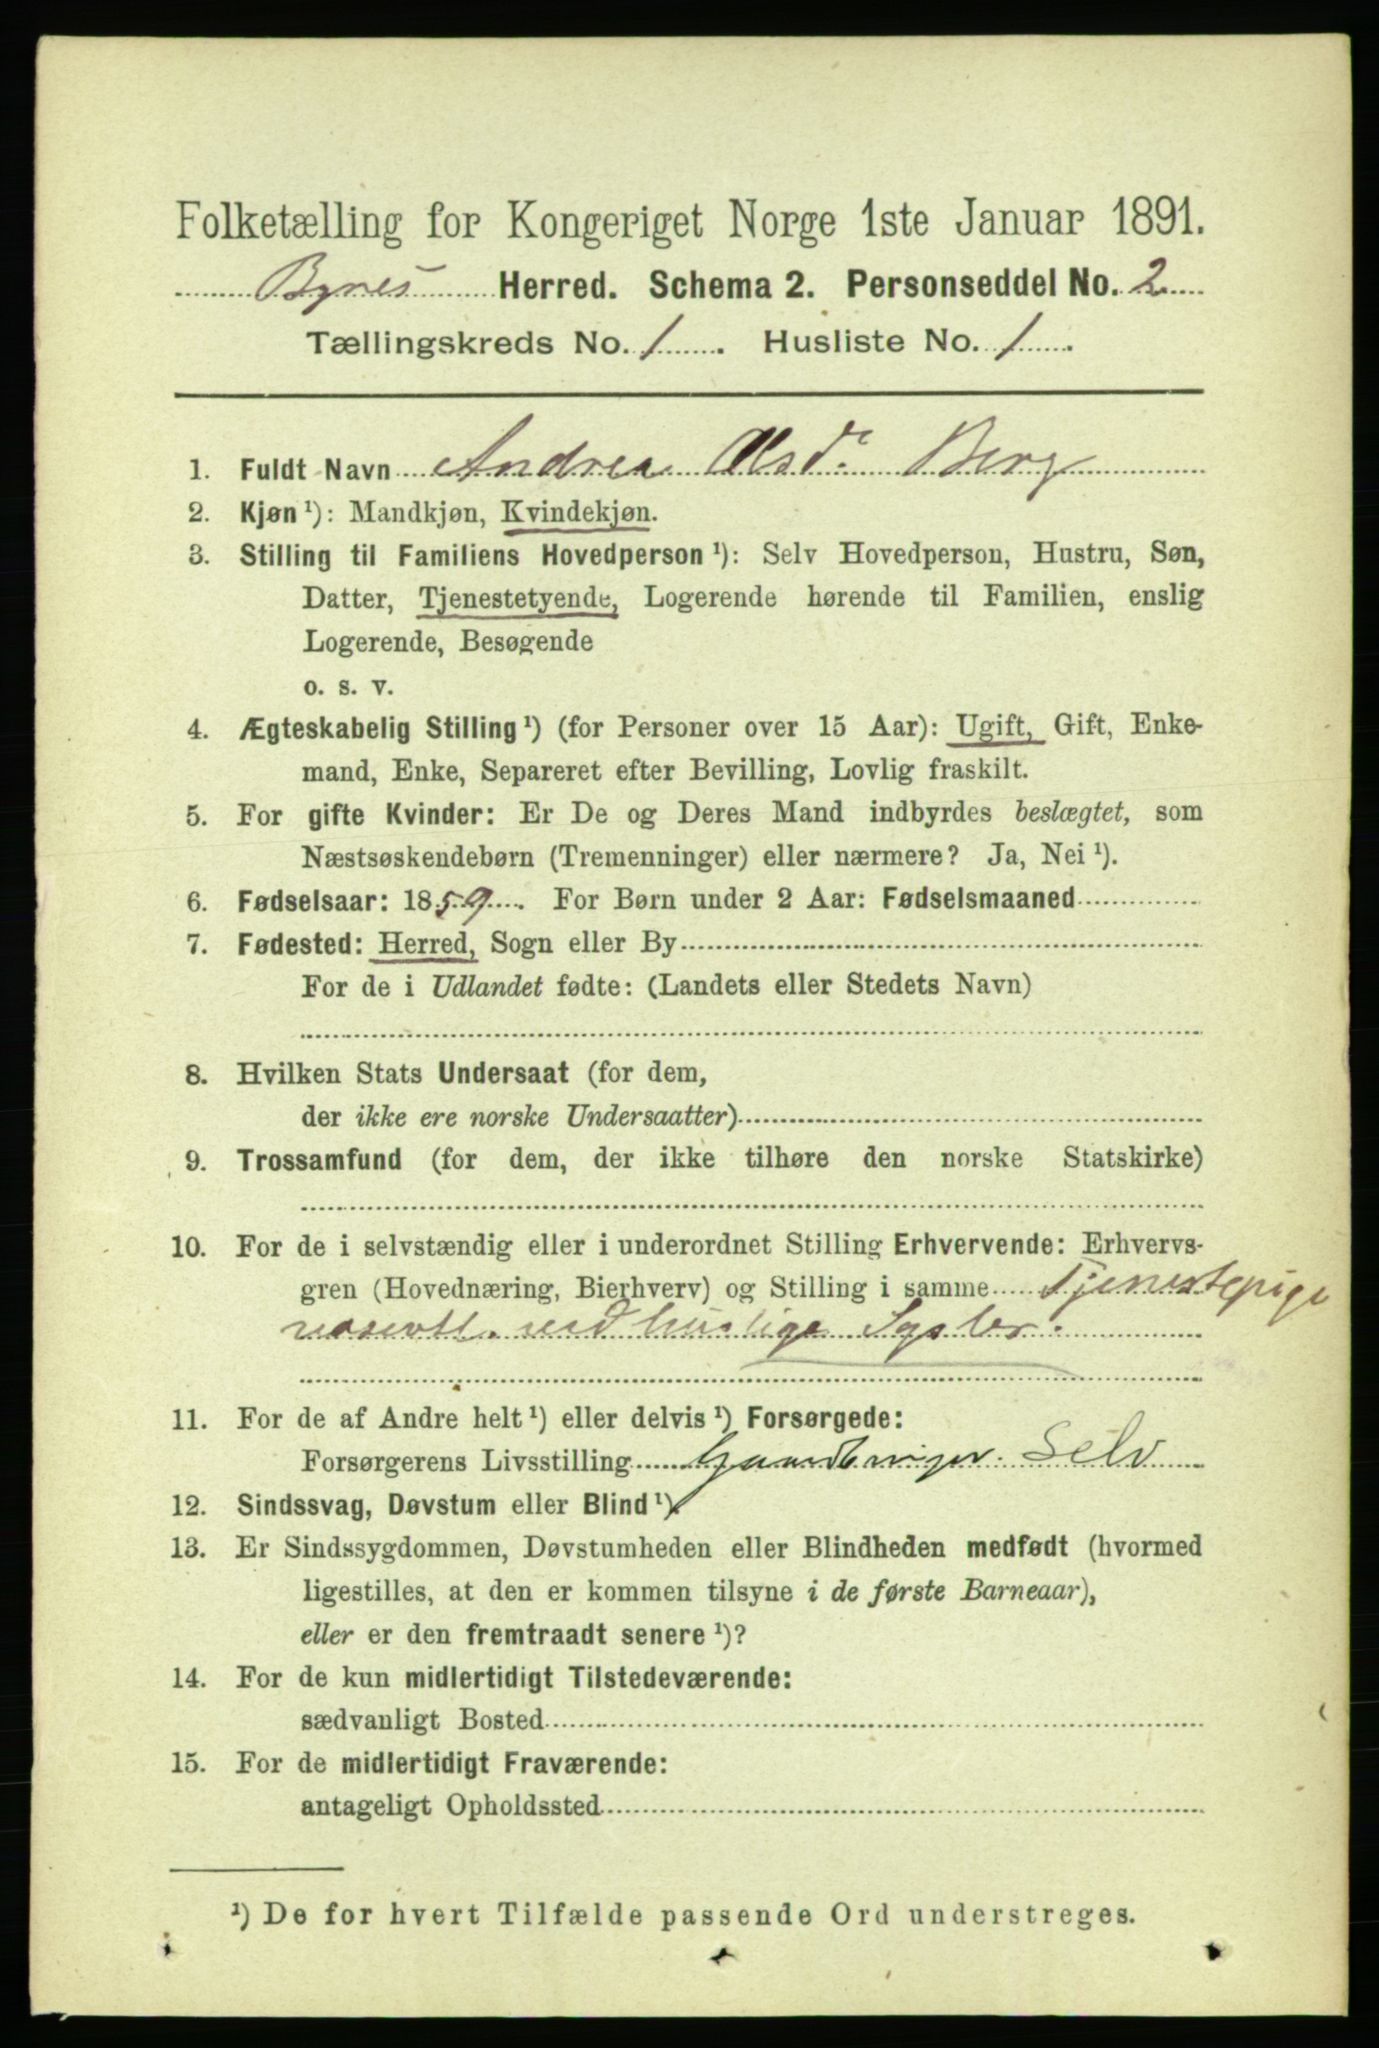 Folketælling for Kongeriget Norge 1ste Januar 1891.
Bynes Herred. Schema 2. Personseddel No. 2
Tællingskreds No. 1. Husliste No. 1.
1. Fuldt Navn Andrea Olsdr. Berg
2. Kjøn ¹): Mandkjøn, Kvindekjøn.
3. Stilling til Familiens Hovedperson ¹): Selv Hovedperson, Hustru, Søn,
Datter, Tjenestetyende, Logerende hørende til Familien, enslig
Logerende, Besøgende
o. s. v.
4. Ægteskabelig Stilling ¹) (for Personer over 15 Aar): Ugift, Gift, Enke-
mand, Enke, Separeret efter Bevilling, Lovlig fraskilt.
5. For gifte Kvinder: Er De og Deres Mand indbyrdes beslægtet, som
Næstsøskendebørn (Tremenninger) eller nærmere? Ja, Nei ¹).
6. Fødselsaar: 1859. For Børn under 2 Aar: Fødselsmaaned
7. Fødested: Herred, Sogn eller By
For de i Udlandet fødte: (Landets eller Stedets Navn)
8. Hvilken Stats Undersaat (for dem,
der ikke ere norske Undersaatter)
9. Trossamfund (for dem, der ikke tilhøre den norske Statskirke)
10. For de i selvstændig eller i underordnet Stilling Erhvervende: Erhvervs-
gren (Hovednæring, Bierhverv) og Stilling i samme Tjenestepige
ved huslige Sysler.
11. For de af Andre helt ¹) eller delvis ¹) Forsørgede:
Forsørgerens Livsstilling Gaardbruger. Selv
12. Sindssvag, Døvstum eller Blind ¹).
13. Er Sindssygdommen, Døvstumheden eller Blindheden medfødt (hvormed
ligestilles, at den er kommen tilsyne i de første Barneaar),
eller er den fremtraadt senere ¹)?
14. For de kun midlertidigt Tilstedeværende:
sædvanligt Bosted
15. For de midlertidigt Fraværende:
antageligt Opholdssted
¹) De for hvert Tilfælde passende Ord understreges.